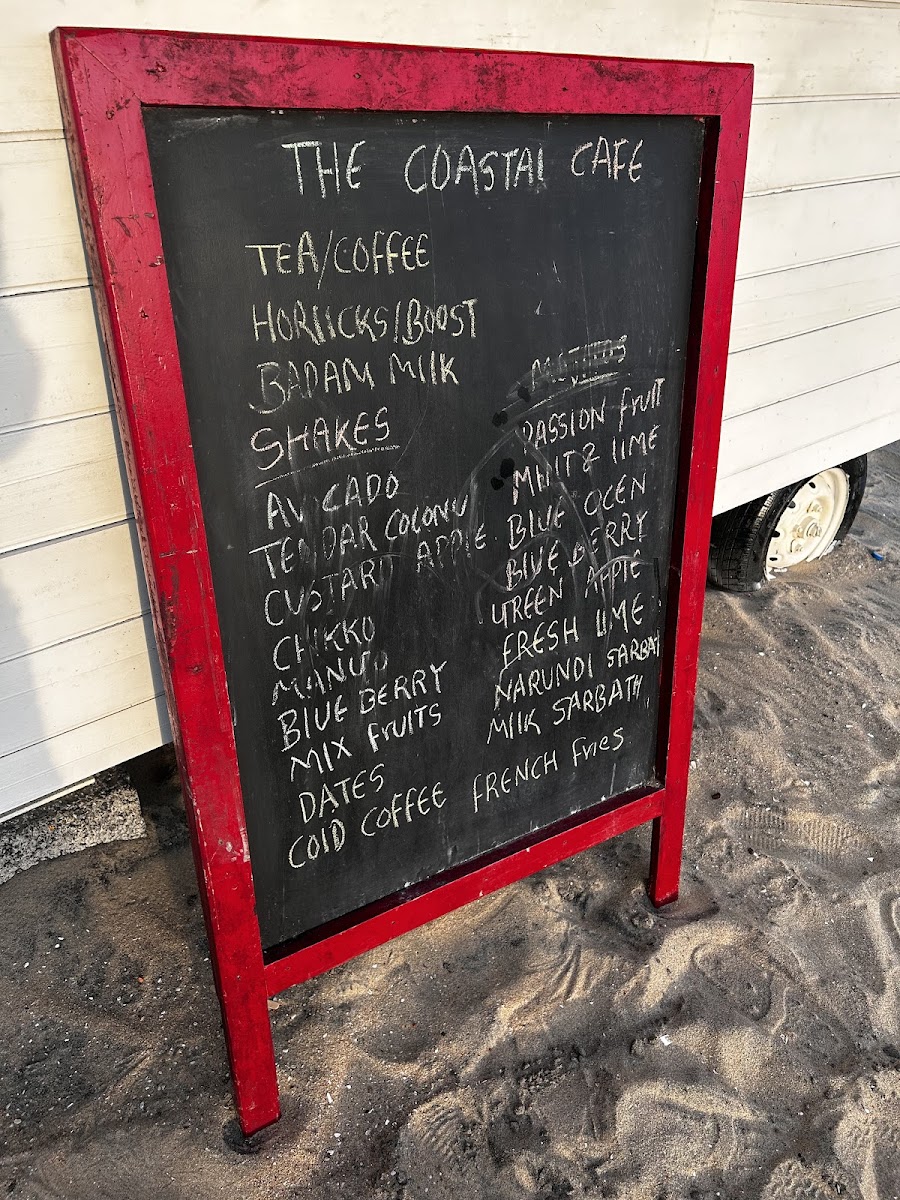 THE COASTAL CAFE
TEA/COFFEE
HORLICKS/BOOST
BADAM MILK
SHAKES
AVOCADO
TENDAR COCONU
CUSTARD APPLE
CHIKKO
MANGO
BLUE BERRY
MIX FRUITS
DATES
COLD COFFEE
MOJITOS
PASSION FRUIT
MINT & LIME
BLUE OCEN
BLUE BERRY
GREEN APPLE
FRESH LIME
NARUNDI SARBAT
MILK SARBATH
FRENCH Fries